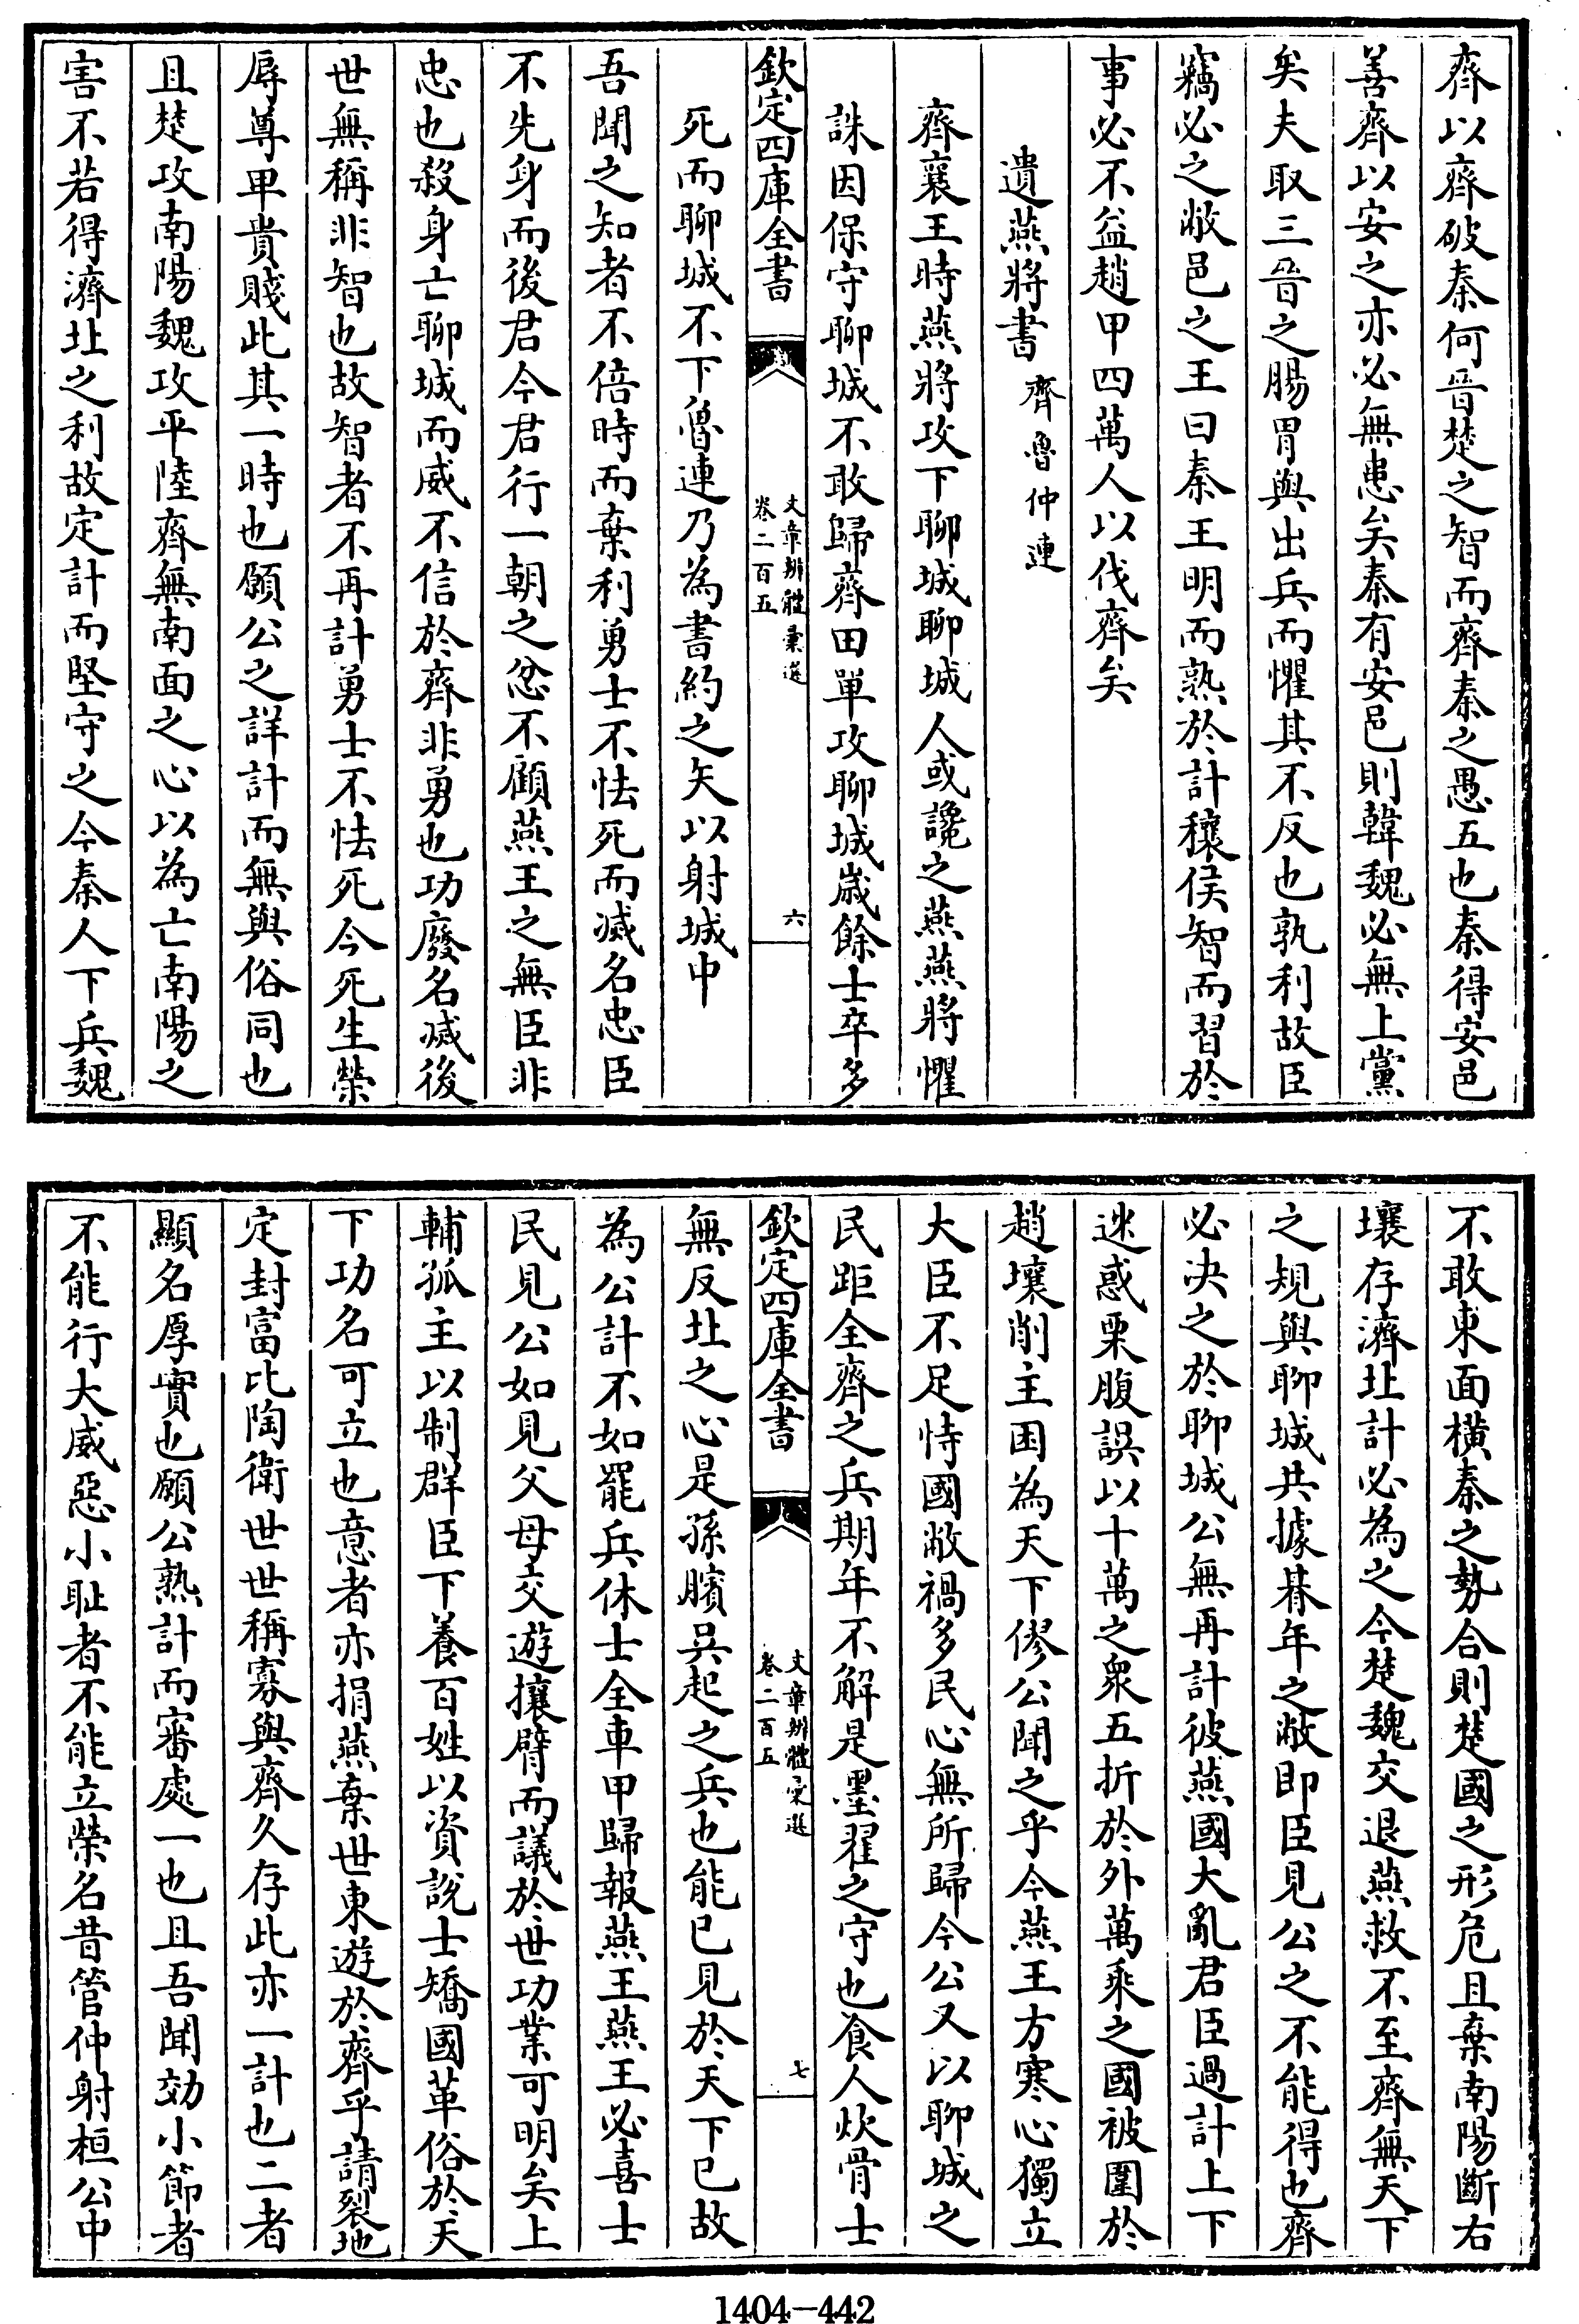 齊以齊破秦何晉楚之智而齊秦之愚五也秦得安邑
善齊以安之亦必無患矣秦有安邑則韓魏必無上黨
矣夫取三晉之腸胃與出兵而懼其不反也孰利故臣
竊必之敝邑之王曰秦王明而熟於計穰侯智而習於
事必不益趙甲四萬人以伐齊矣
遺燕將書 齊魯仲連
齊襄王時燕將攻下聊城聊城人或讒之燕燕將懼
誅因保守聊城不敢歸齊田單攻聊城歲餘士卒多
欽定四庫全書 文章辨體彙選 卷二百五 六
死而聊城不下魯連乃為書約之矢以射城中
吾聞之知者不倍時而棄利勇士不怯死而滅名忠臣
不先身而後君今君行一朝之忿不顧燕王之無臣非
忠也殺身亡聊城而威不信於齊非勇也功廢名滅後
世無稱非智也故智者不再計勇士不怯死今死生榮
辱尊卑貴賤此其一時也願公之詳計而無與俗同也
且楚攻南陽魏攻平陸齊無南面之心以為亡南陽之
害不若得濟北之利故定計而堅守之今秦人下兵魏
不敢東面橫秦之勢合則楚國之形危且棄南陽斷右
壤存濟北計必為之今楚魏交退燕救不至齊無天下
之規與聊城共據朞年之敝即臣見公之不能得也齊
必決之於聊城公無再計彼燕國大亂君臣過計上下
迷惑栗腹誤以十萬之衆五折於外萬乘之國被圍於
趙壤削主困為天下僇公聞之乎今燕王方寒心獨立
大臣不足恃國敝禍多民心無所歸今公又以聊城之
民距全齊之兵期年不解是墨翟之守也食人炊骨士
欽定四庫全書 文章辨體彙選 卷二百五 七
無反北之心是孫臏吳起之兵也能已見於天下已故
為公計不如罷兵休士全車甲歸報燕王燕王必喜士
民見公如見父母交遊攘臂而議於世功業可明矣上
輔孤主以制群臣下養百姓以資說士矯國革俗於天
下功名可立也意者亦捐燕棄世東遊於齊乎請裂地
定封富比陶衛世世稱寡與齊久存此亦一計也二者
顯名厚實也願公熟計而審處一也且吾聞効小節者
不能行大威惡小恥者不能立榮名昔管仲射桓公中
1404-442